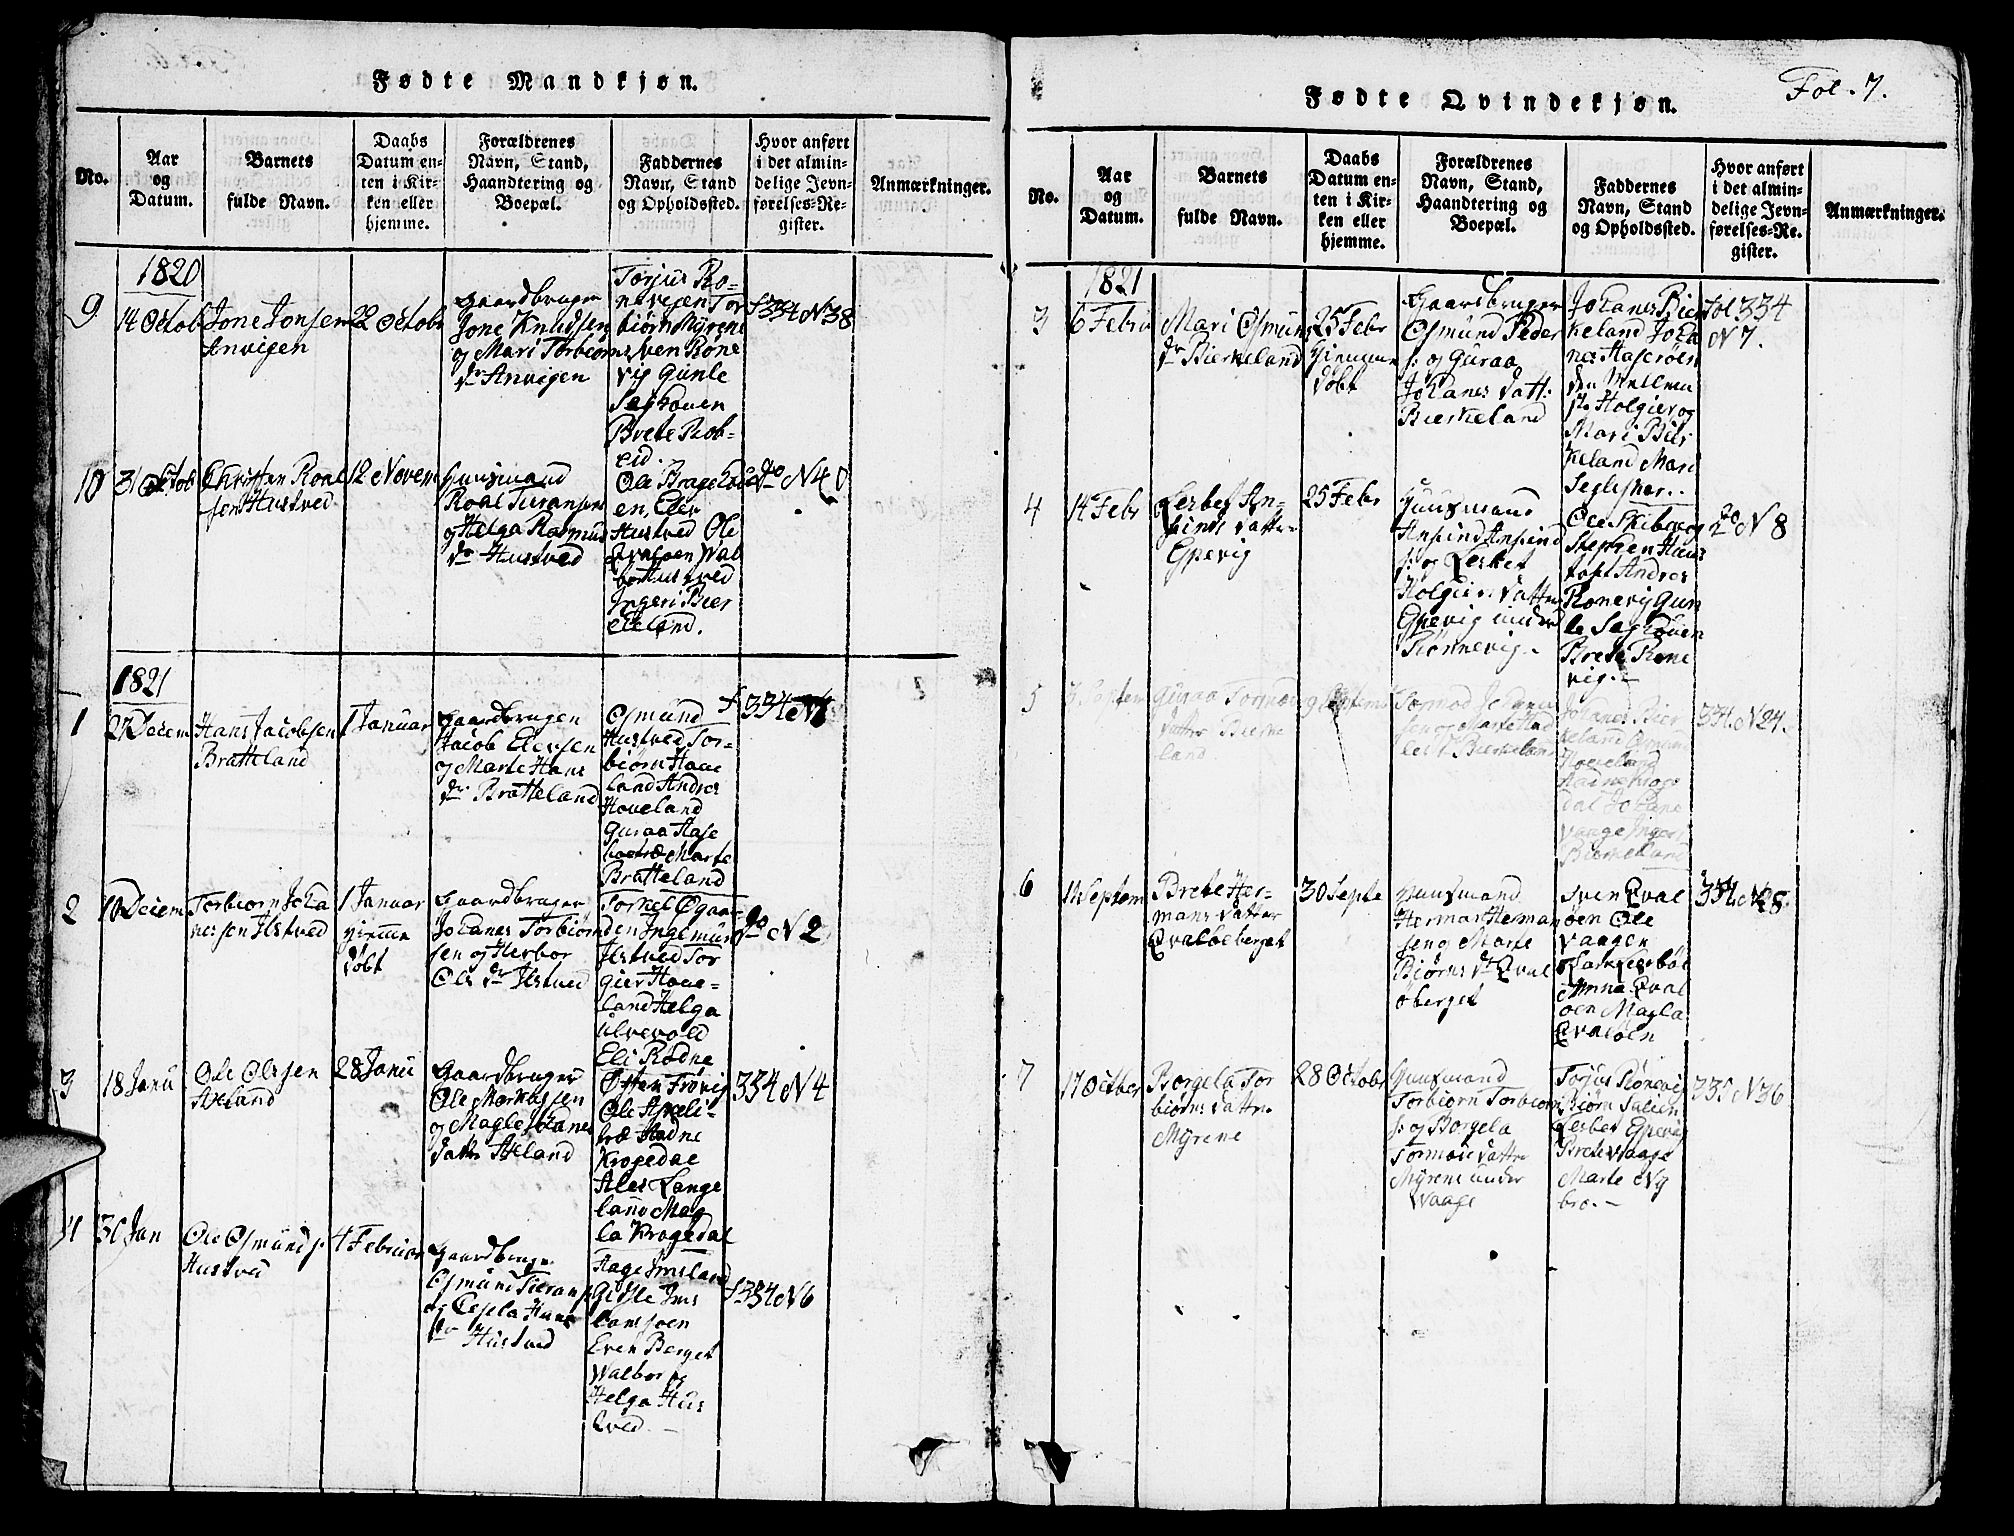 Fødte Mandkjøn.
No.
Aar
og
Datum.
Barnets
fulde Navn.
Daabs
Datum en-
ten i Kir-
ken eller
hjemme.
Forældrenes
Navn, Stand,
Haandtering og
Boepæl.
Faddernes
Navn, Stand
og Opholdssted.
Hvor anført
i det almin-
delige Jevn-
førelses-Re-
gister.
Anmærkninger.
1820
9
14 Octob
Jone Jonsen
Anvigen
22 Octobr
Gaardbruger
Jone Knudsen
og Mari Torbiorns
dr Anvigen
Torjus Ro-
nevigen Tor
biørn Myrene
Sven Rone
vig Gunle
Saghouen
Brete Rob-
eid.
f 334 N 38
10
31 Octob
Christen Roal
sen Hustved
12 Novem
Huusmand
Roal Turansen
og Helga Rasmus
dr Hustved
Ole
en, Elev
Hustved Ole
Qvaloen Wal
bor Hustved
Ingeri Bier
keland.
do N 40
1821
1
27 Decem
Hans Jacobsen
Bratteland
1 Januar
Gaardbruger
Jacob Elevsen
og Marte Hans
dr Bratteland
Osmund
Hustved Tor-
biørn Haae
land Andres
Hoveland
Guraa Hase
Marte
Bratteland
f 334 N 1
2
10 Decem
Torbiorn Joha
nessen Ilstved
1 Januar
hiemme
døbt
Gaardbruger
Johanes Torbiorn
sen og Herbor
Ols dr Ilstved
Torkel Øgaar-
den Ingemun
Ilstved Tor
gier Hove-
land Helga
Ulvevold
Eli Rødne
do N 2
3
18 Janu
Ole Olsen
Aeland
28 Janu
Gaardbruger
Ole Markussen
og Magle Johanes
datter Aeland
Østen Frøvig
Ole Apeli-
træ Aadne
Krogedal
Ales Lange
land Mag
la Krogedal
334 N 4
4
30 Jan
Ole Osmunds.
Hustved
4 Februar
Gaardbruger
Osmund
og Hans
dr Hustved
Aage Imsland
Gidsle Ims
landsoen
Even Berget
Walbor og
Helga Hus
tved.
f 334 N 6
Fol. 7.
Fødte Qvindekjøn.
No.
Aar
og
Datum.
Barnets
fulde Navn.
Daabs
Datum en-
ten i Kir-
ken eller
hjemme.
Forældrenes
Navn, Stand,
Haandtering og
Boepæl.
Faddernes
Navn, Stand
og Opholdssted.
Hvor anført
i det almin-
delige Jevn-
førelses-Re-
gister.
Anmærkninger.
1821
3
6 Febru
Mari Osmuns
dr Bierkeland
25 Febr
Hiemme
døbt
Gaardbruger
Osmund Peder
s: og Guraa
Johanes datt:
Bierkeland
Johanes Bier
keland Joha
nes
den
Holgier og
Mari Bier
keland Mari
fol 334
N 7.
4
14 Febr
Lisbet An-
finds datter
Gpevig
25 Febr
Huusmand
Anfind Anfind
s: og Lisbet
Holgiers datter
Gpevig under
Rønnevig.
Ole Skibevog
Stephen Haus
toft Andres
Ronevig Gun
le Saghouen
Brete Rone
vig.
do N 8
5
Septem
Guraa Tormo
datter Bierke
land
Septemb
Tormod Johanes
sen og Marte
Bierkeland
Johanes Bier
keland
Hoveland
Aadne
dal Johane
Vaage Inger
Bierkeland
334 N 24.
6
14 Septem
Brete Her-
mans datter
Qvaløeberget
30 Septe
Huusmand
Herman Heman
sen og Marte
Biørns dr Qval
øberget
Sven Qval
øen Ole
Vaagen
Anna Qval
øen Magla
Qvaløen
334 N 28.
7
17 Octber
Borgela Tor
biørns datter
Myrene
28 Octobr
Huusmand
Torbiorn Torbiorn
s: og Borgela
Tormods datter
Myrene under
Vaage
Torjus Rønevig
Biørn
Lisbet Gpevig
Brete Vaage
Marte Ny
bro.
335 N 36